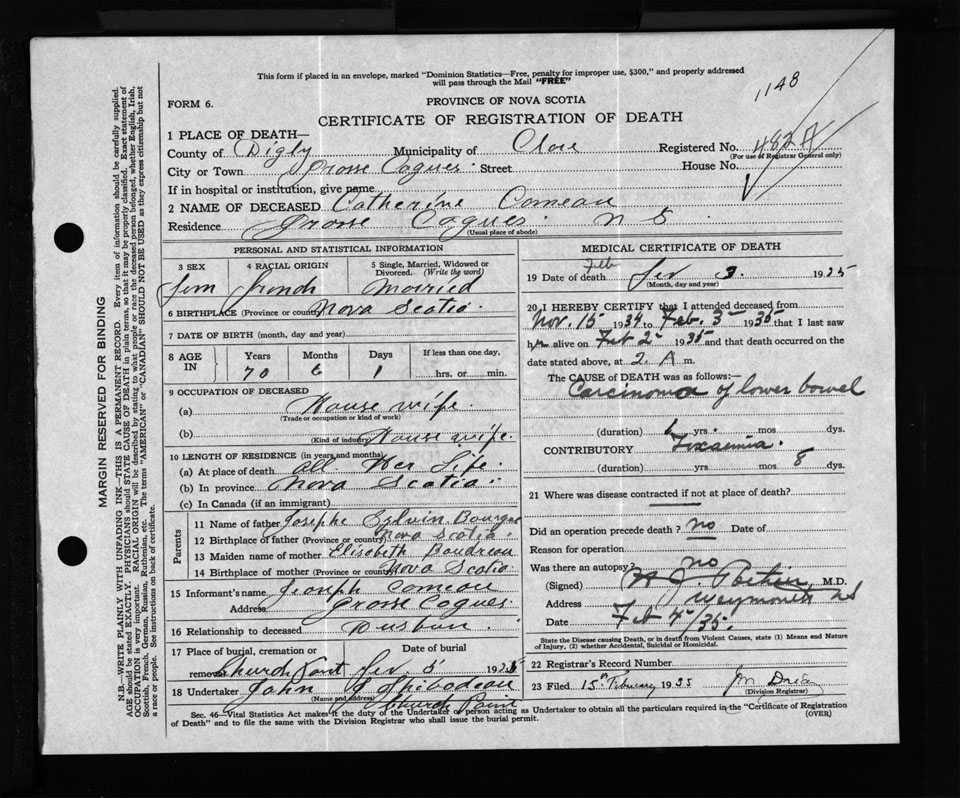 This form if placed in an envelope, marked "Dominion Statistics—Free, penalty for improper use, $300," and properly addressed
will pass through the Mail "FREE"
1148
FORM 6.
PROVINCE OF NOVA SCOTIA
CERTIFICATE OF REGISTRATION OF DEATH
1 PLACE OF DEATH—
County of Digby Municipality of Clare Registered No.
(For use of Registrar General only)
City or Town Grosse Coques Street House No.
If in hospital or institution, give name
2 NAME OF DECEASED Catherine Comeau
Residence Grosse Coques N S
(Usual place of abode)
PERSONAL AND STATISTICAL INFORMATION
3 SEX 4 RACIAL ORIGIN 5 Single, Married, Widowed or Divorced. (Write the word)
Fem French Married
6 BIRTHPLACE (Province or country) Nova Scotia
7 DATE OF BIRTH (month, day and year)
8 AGE IN Years Months Days If less than one day,
70 6 1 hrs. or min.
9 OCCUPATION OF DECEASED
(a) House wife
(Trade or occupation or kind of work)
(b) House wife.
(Kind of industry)
10 LENGTH OF RESIDENCE (in years and months)
(a) At place of death all Her Life
(b) In province Nova Scotia
(c) In Canada (if an immigrant)
Parents
11 Name of father Josephe Sylvin Bourque
12 Birthplace of father (Province or country) Nova Scotia
13 Maiden name of mother Elisabeth Boudreau
14 Birthplace of mother (Province or country) Nova Scotia
15 Informant's name Joseph Comeau
Address Grosse Coques
16 Relationship to deceased Husbun
17 Place of burial, cremation or removal Date of burial
Church Point Fev 5 1935
18 Undertaker John Thibodeau
(Name and address) Church Point
MEDICAL CERTIFICATE OF DEATH
19 Date of death Feb Fev 3 1925
(Month, day and year)
20 I HEREBY CERTIFY that I attended deceased from
Nov. 15 1934 to Feb. 3 1935 that I last saw
alive on Feb 2 1935 and that death occurred on the
date stated above, at 2. A m.
The CAUSE OF DEATH was as follows:—
Carcinoma of lower bowel
(duration) yrs. mos dys.
CONTRIBUTORY Toxaemia.
(duration) yrs. mos 8 dys.
21 Where was disease contracted if not at place of death?
Did an operation precede death? no Date of
Reason for operation
Was there an autopsy? no
(Signed) M.D.
Address Weymouth NS
Date Feb /35.
State the Disease causing Death, or in death from Violent Causes, state (1) Means and Nature
of Injury, (2) whether Accidental, Suicidal or Homicidal.
22 Registrar's Record Number
23 Filed 15th February 1935
(Division Registrar)
Sec. 46—Vital Statistics Act makes it the duty of the Undertaker or person acting as Undertaker to obtain all the particulars required in the "Certificate of Registration
of Death" and to file the same with the Division Registrar who shall issue the burial permit. (OVER)
MARGIN RESERVED FOR BINDING
N.B.—WRITE PLAINLY WITH UNFADING INK—THIS IS A PERMANENT RECORD. Every item of information should be carefully supplied.
AGE should be stated EXACTLY. PHYSICIANS should STATE CAUSE OF DEATH in plain terms, so that it may be properly classified. Exact statement of
OCCUPATION is very important. RACIAL ORIGIN will be described by stating to what people or race the deceased person belonged, whether English, Irish,
Scottish, French, German, Russian, Ruthenian, etc. The terms "AMERICAN" or "CANADIAN" SHOULD NOT BE USED as they express citizenship but not
a race or people. See instructions on back of certificate.